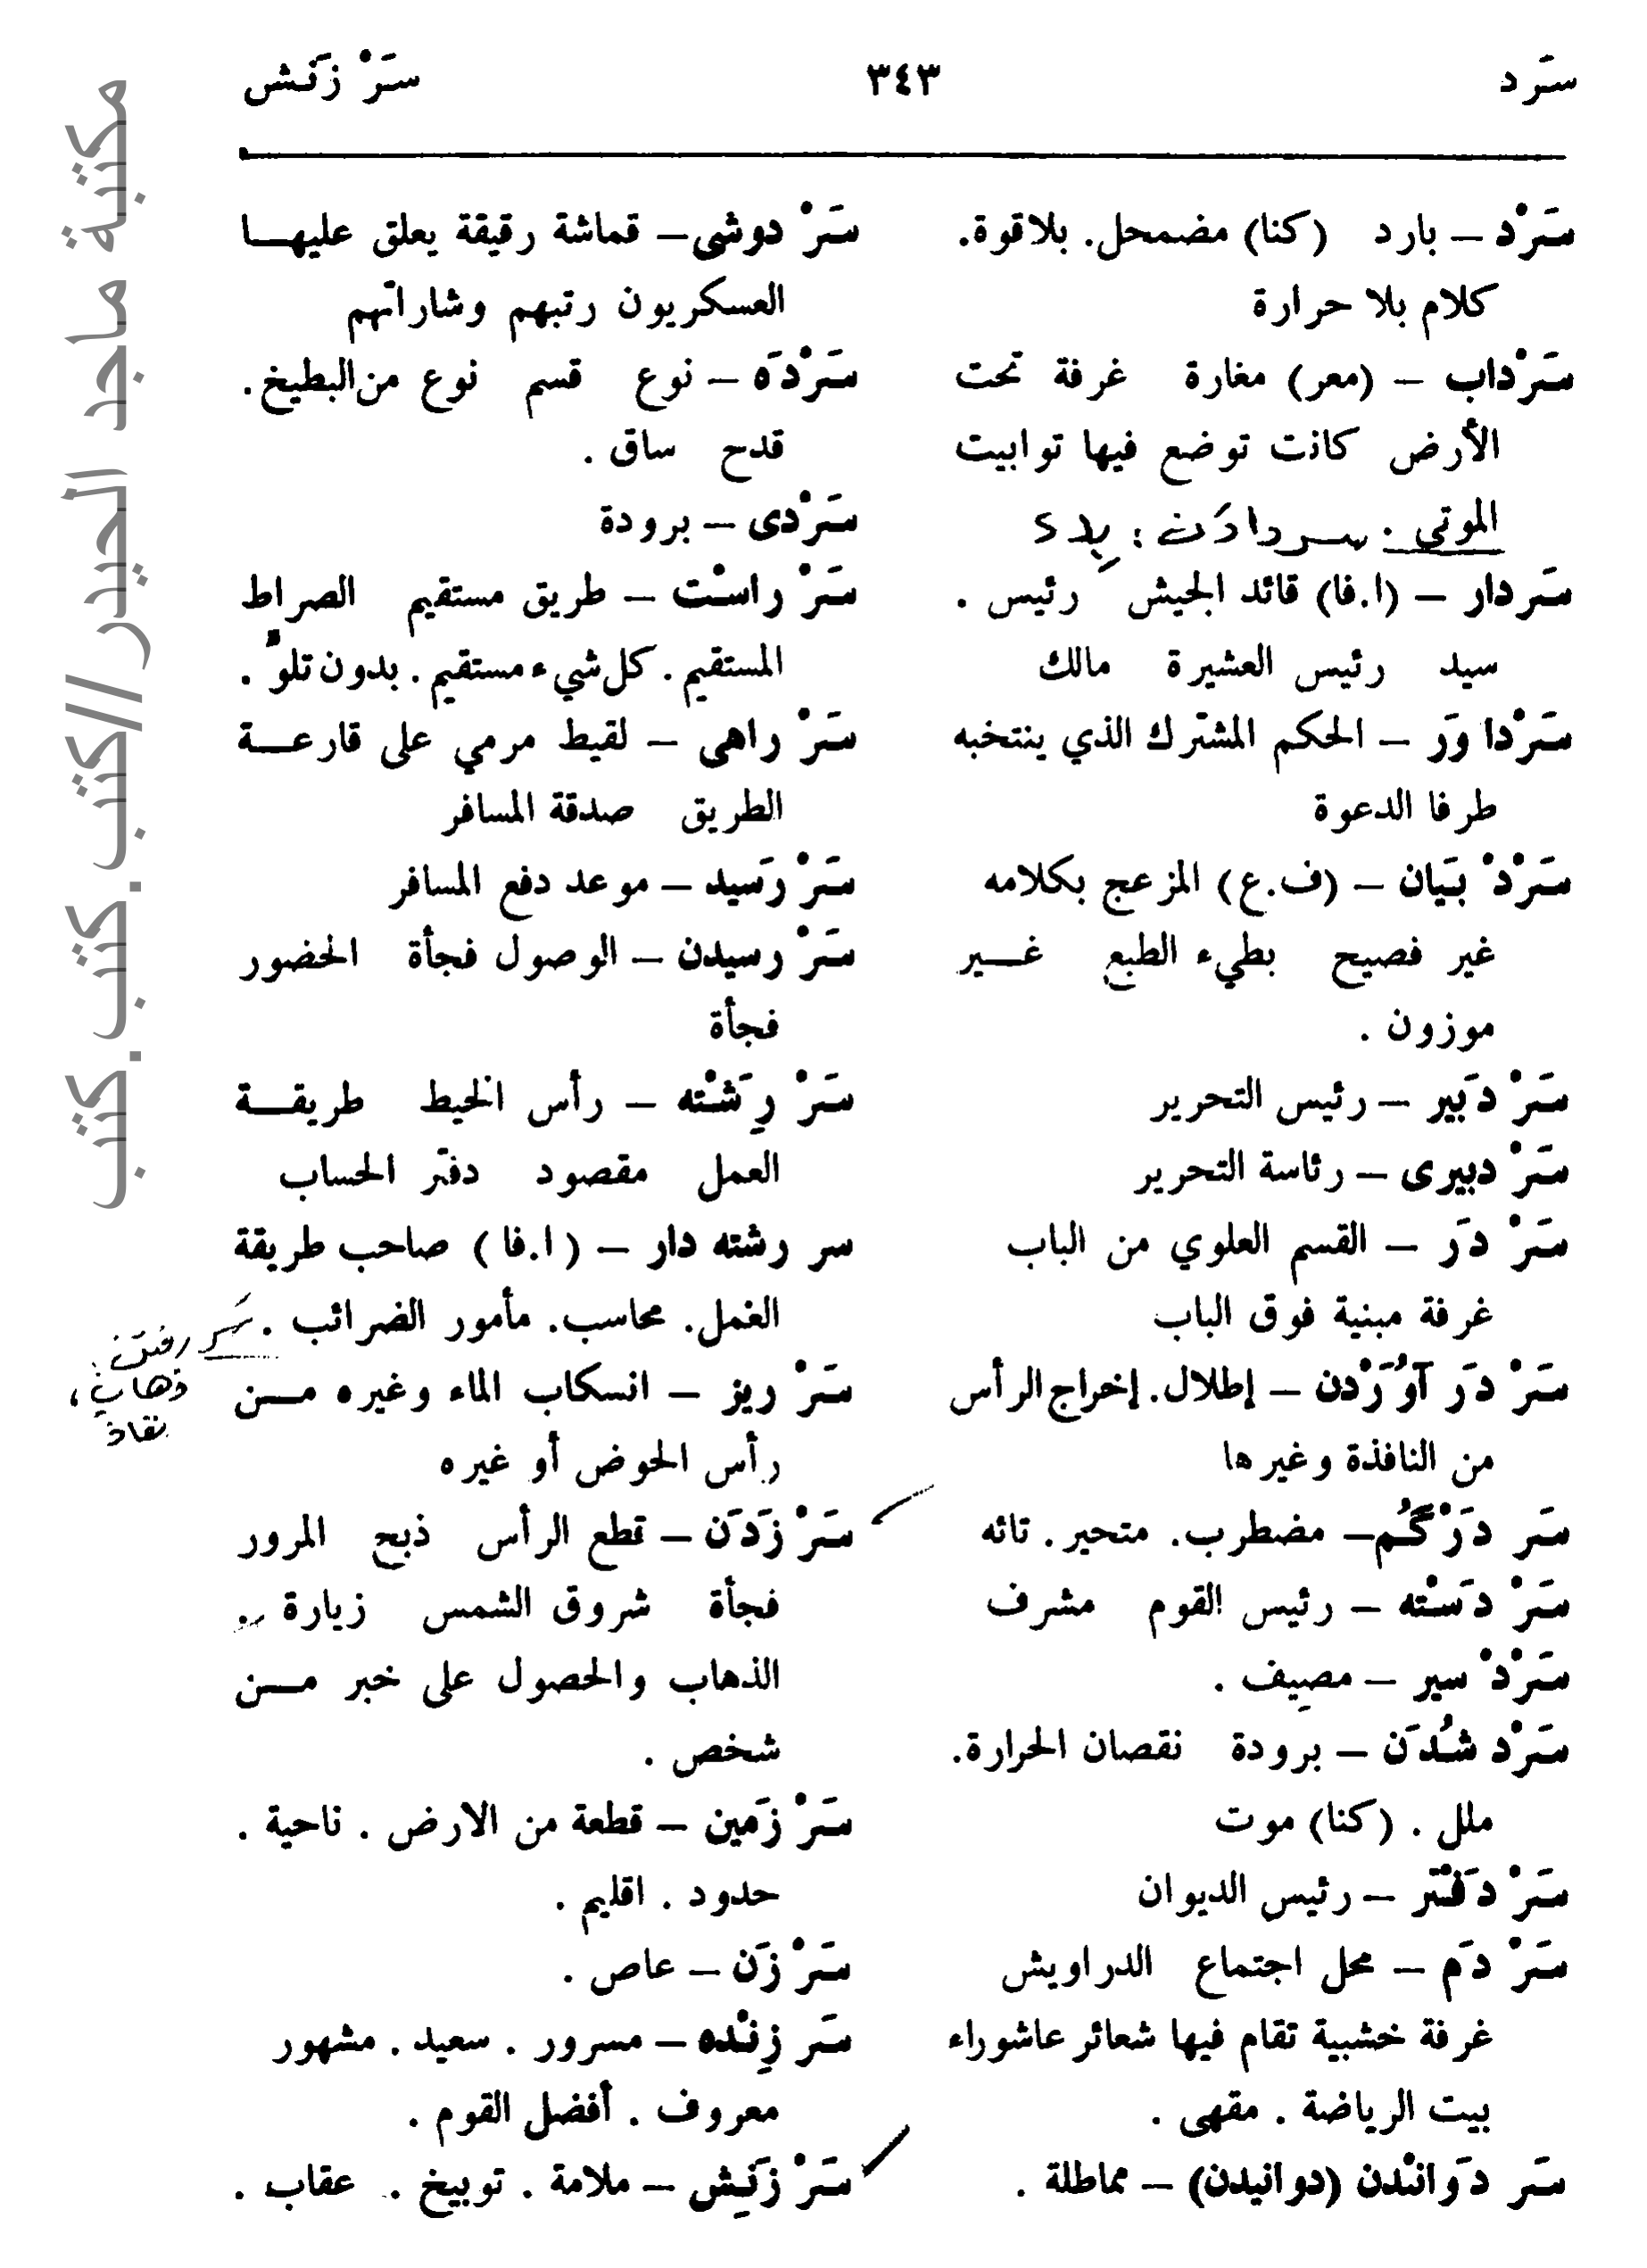 سَرد
٣٤٣
سَرْ زَنش
سَرْد – بارد (كنا) مضمحل. بلاقوة.
كلام بلا حرارة
سَرْداب – (معر) مغارة غرفة تحت
الأرض كانت توضع فيها توابيت
الموتى .
سَردار – (ا.فا) قائد الجيش رئيس .
سيد رئيس العشيرة مالك
سَرْدا وَر – الحكم المشترك الذي ينتخبه
طرفا الدعوة
سَرْدْ بَيان – (ف.ع) المزعج بكلامه
غير فصيح بطيء الطبع غـــير
موزون .
سَرْ دَبير – رئيس التحرير
سَرْ دبيرى – رئاسة التحرير
سَرْ دَر – القسم العلوي من الباب
غرفة مبنية فوق الباب
سَرْ دَر آوُرَْدن – إطلال. إخراج الرأس
من النافذة وغيرها
سَر دَرْگُم – مضطرب. متحير. تائه
سَرْ دَسْته – رئيس القوم مشرف
سَرْدْ سير – مصيف .
سَرْد شُدَن – برودة نقصان الحرارة.
ملل . (كنا) موت
سَرْ دَفْتَر – رئيس الديوان
سَرْ دَم – محل اجتماع الدراويش
غرفة خشبية تقام فيها شعائر عاشوراء
بيت الرياضة . مقهى .
سَر دَوانْدن (دوانيدن) – مماطلة .
سَرْ دوشى – قماشة رقيقة يعلق عليهـــا
العسكريون رتبهم وشاراتهم
سَرْدَه – نوع قسم نوع من البطيخ.
قدح ساق .
سَرْدى – برودة
سَرْ راسْت – طريق مستقيم الصراط
المستقيم . كل شيء مستقيم . بدون تلوّ .
سَرْ راهى – لقيط مرمي على قارعـــة
الطريق صدقة المسافر
سَرْ رَسيد – موعد دفع المسافر
سَرْ رسيدن – الوصول فجأة الحضور
فجأة
سَرْ رِشْته – رأس الخيط طريقـــة
العمل مقصود دفتر الحساب
سر رشته دار – (ا.فا) صاحب طريقة
الغمل. محاسب. مأمور الضرائب .
سر رفتن :
ذهاب ،
نفاد
سَرْ ريز – انسكاب الماء وغيره مـــن
رأس الحوض أو غيره
سَرْ زَدَن – قطع الرأس ذبح المرور
فجأة شروق الشمس زيارة .
الذهاب والحصول على خبر مـــن
شخص .
سَرْ زَمين – قطعة من الارض . ناحية .
حدود . اقليم .
سَرْ زَن – عاص .
سَر زِنْده – مسرور . سعيد . مشهور
معروف . أفضل القوم .
سَرْ زَنِش – ملامة . توبيخ . عقاب .
مكتبة ماجد الحيدر//كتب.كتب.كتب